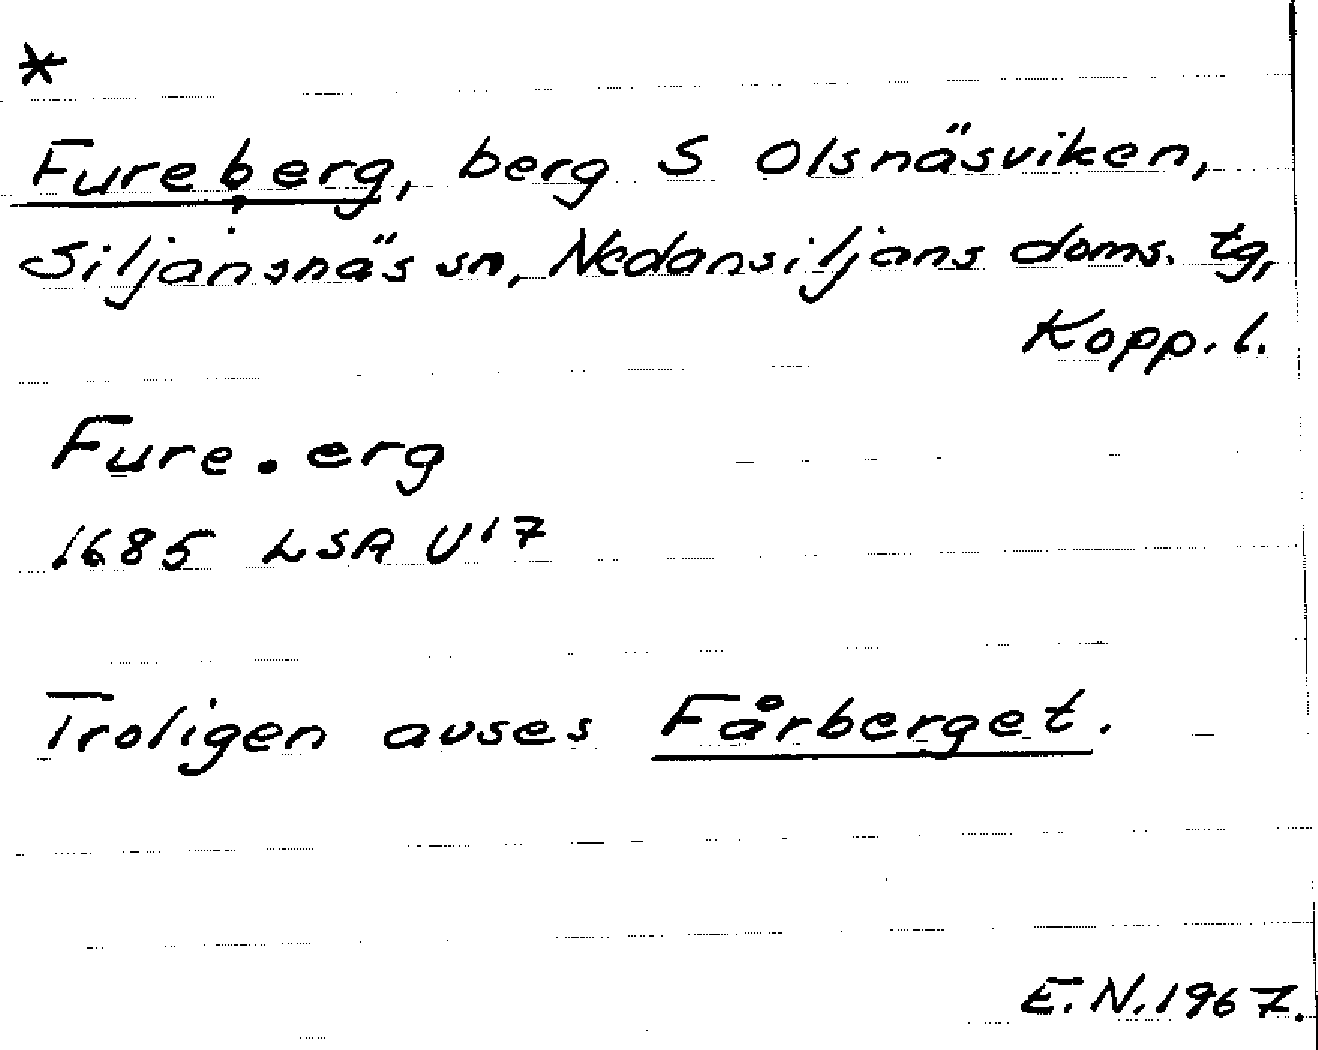 *
Fureḅerg, berg S Olsnäsviken,
Siljansnäs sn, Nedansiljans doms. tg,
Kopp. l.
Fure.erg
1685 LSA U'7
Troligen avses Fårberget.
E.N. 1967.